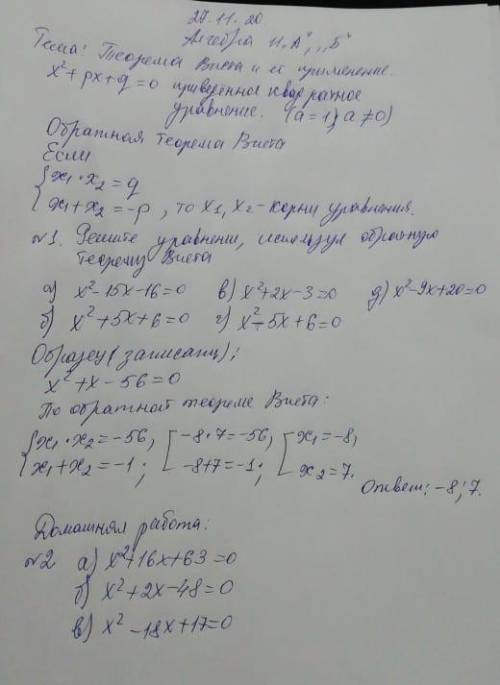 27.11.20
Алгебра 11 „А", „Б"
Тема: Теорема Виета и её применение.
x²+px+q=0 приведённое квадратное
уравнение. (a=1; a≠0)
Обратная теорема Виета
Если
{x₁·x₂=q
{x₁+x₂=-p, то x₁, x₂-корни уравнения.
№1. Решите уравнение, используя обратную
теорему Виета
а) x²-15x-16=0 в) x²+2x-3=0 д) x²-9x+20=0
б) x²+5x+6=0 г) x²-5x+6=0
Образец (записать);
x²+x-56=0
По обратной теореме Виета:
{x₁·x₂=-56, [-8·7=-56, [x₁=-8,
{x₁+x₂=-1; [-8+7=-1; [x₂=7.
Ответ: -8; 7.
Домашняя работа:
№2 а) x²+16x+63=0
б) x²+2x-48=0
в) x²-18x+17=0